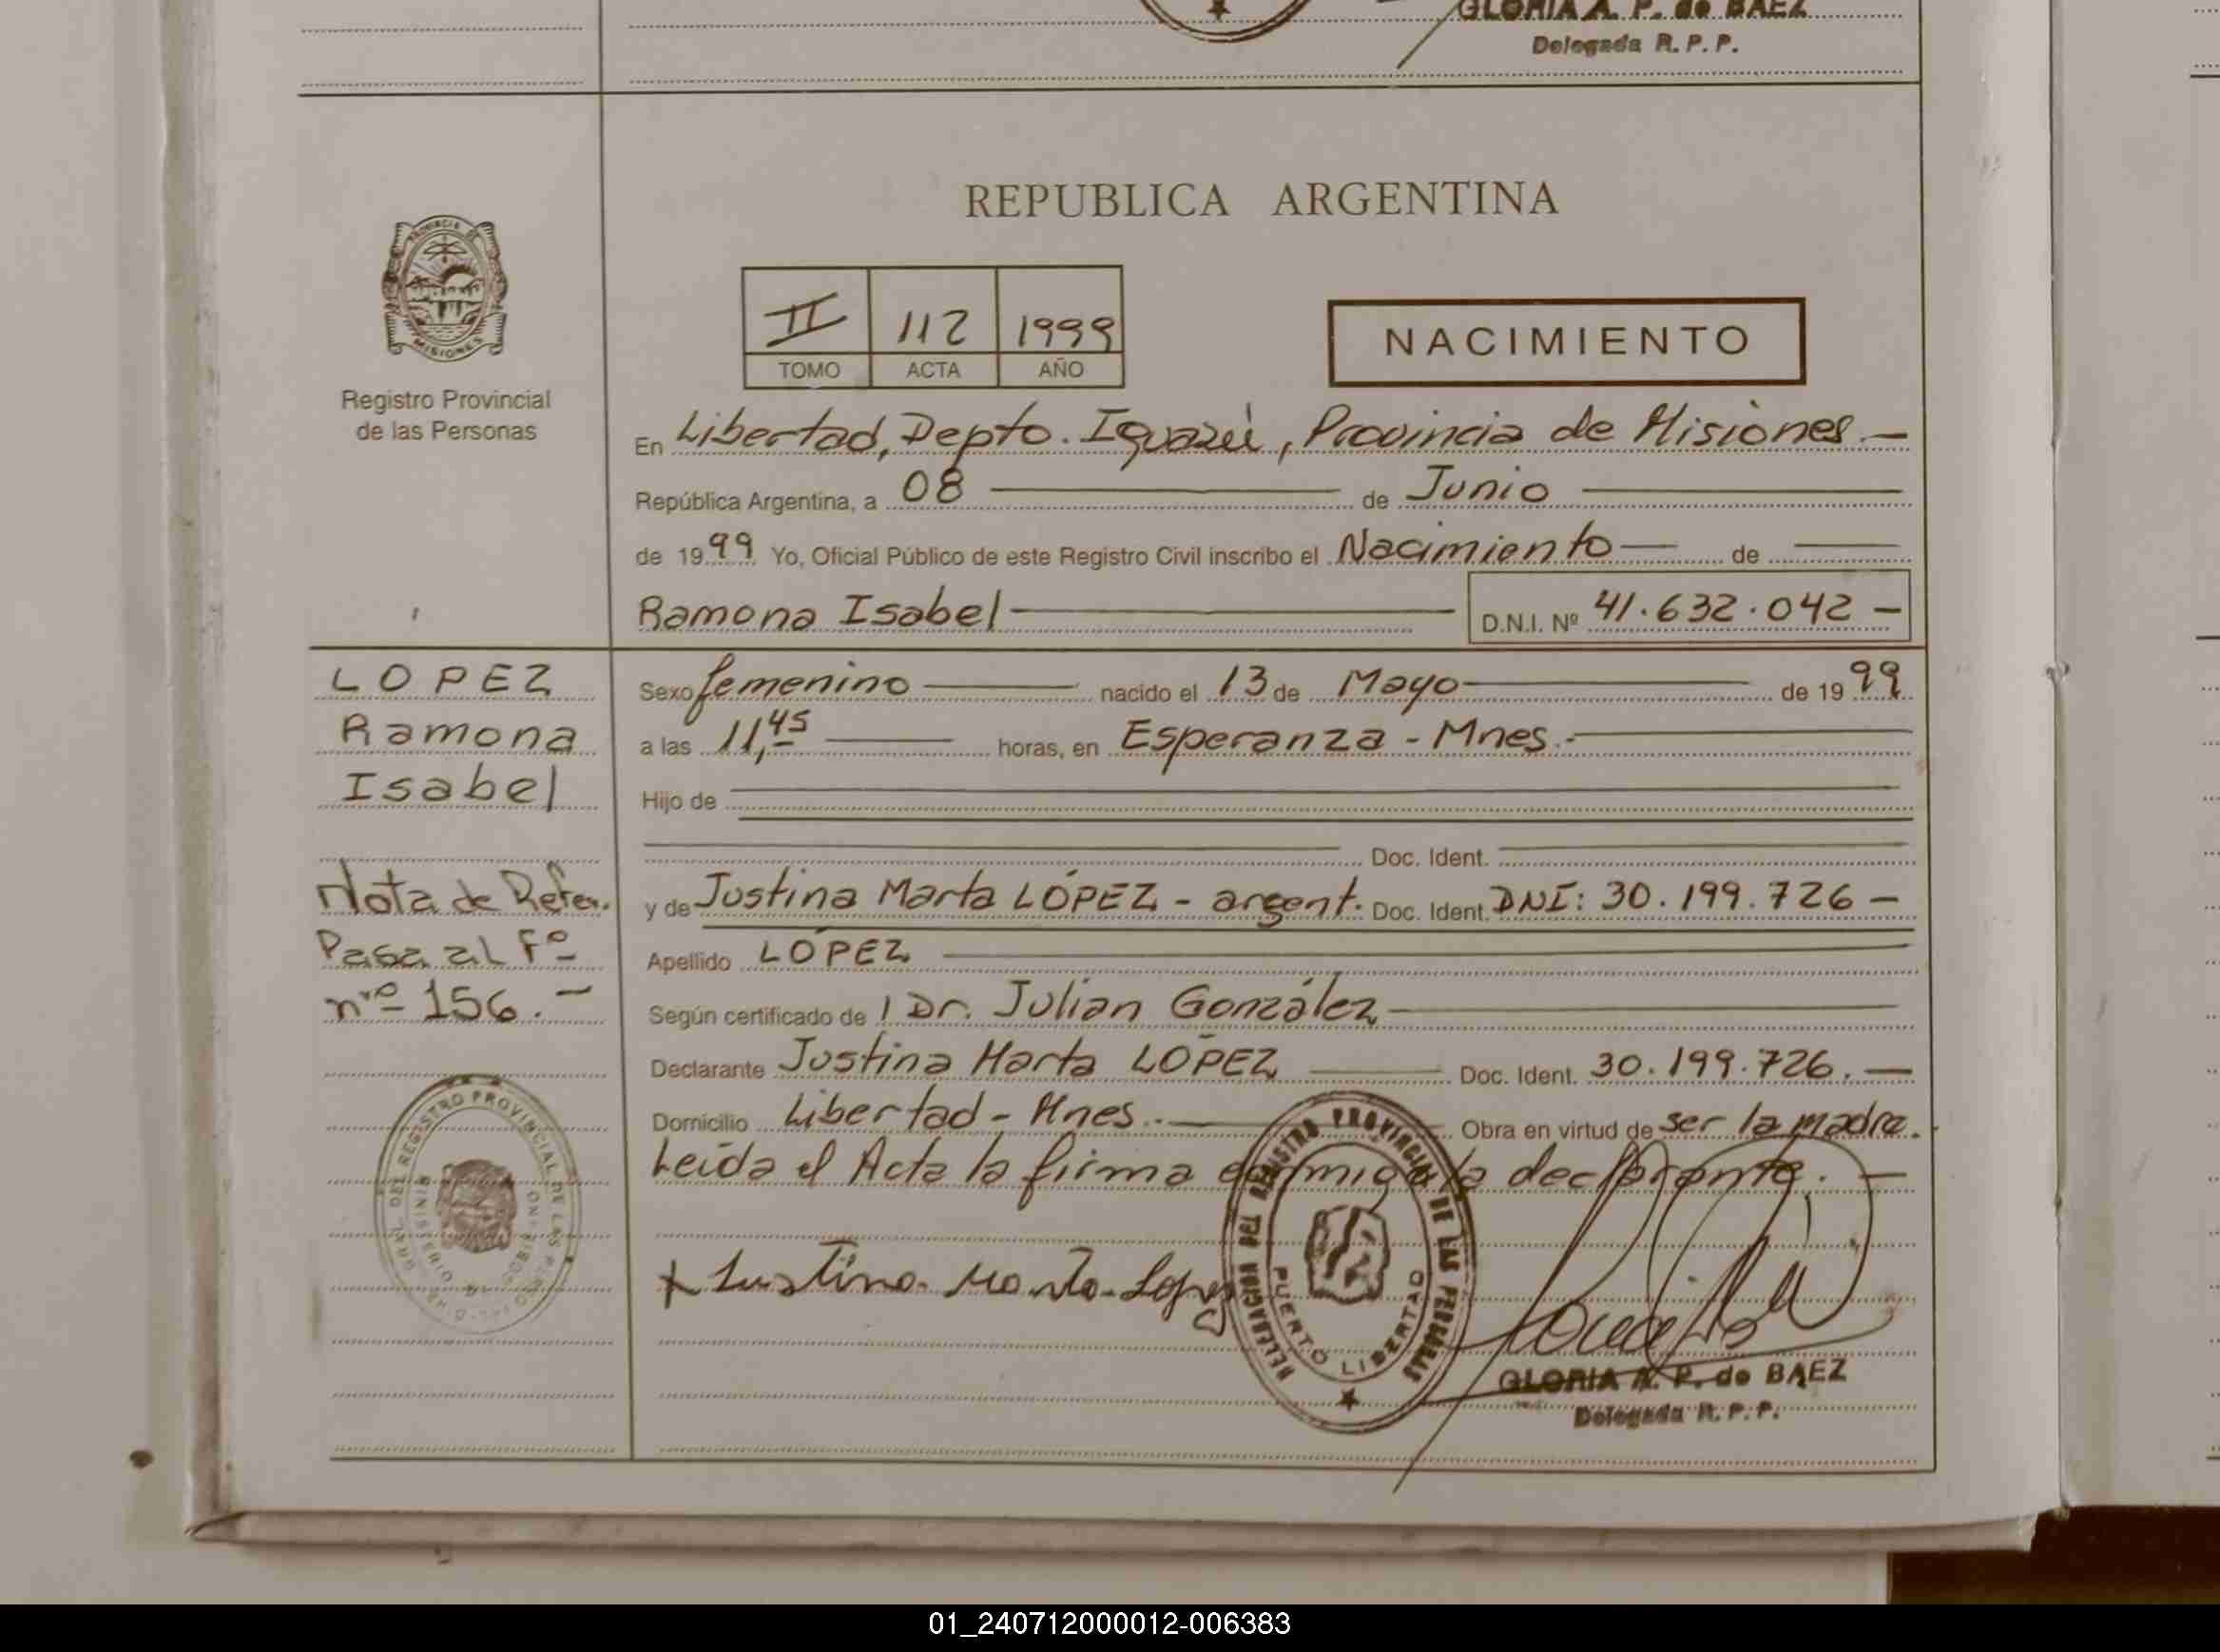 GLORIA A. P. de BAEZ
Delegada R. P. P.
REPUBLICA ARGENTINA
PROVINCIA DE
MISIONES
Registro Provincial
de las Personas
II 112 1999
TOMO ACTA AÑO
NACIMIENTO
En Libertad, Depto. Iguazú, Provincia de Misiones.—
República Argentina, a 08 — de Junio —
de 1999 Yo, Oficial Público de este Registro Civil inscribo el Nacimiento — de —
Ramona Isabel — D.N.I. Nº 41.632.042 —
LOPEZ
Ramona
Isabel
Nota de Refer.
Pasa al Fº
nrº 156. —
Sexo femenino — nacido el 13 de Mayo — de 1999
a las 11,45 — horas, en Esperanza - Mnes.-
Hijo de
Doc. Ident.
y de Justina Marta LÓPEZ - argent. Doc. Ident. DNI: 30.199.726 —
Apellido LÓPEZ —
Según certificado de l Dr. Julian González —
Declarante Justina Marta LÓPEZ — Doc. Ident. 30.199.726. —
Domicilio Libertad - Mnes.- — Obra en virtud de ser la madre.
Leída el Acta la firma conmigo la declarante. —
x Justina Marta Lopez
DELEGACION DEL REGISTRO PROVINCIAL DE LAS PERSONAS
PUERTO LIBERTAD
GRAL. DEL REGISTRO PROVINCIAL DE LAS PERSONAS
MINISTERIO DE GOBIERNO
GLORIA A. P. de BAEZ
Delegada R. P. P.
01_240712000012-006383